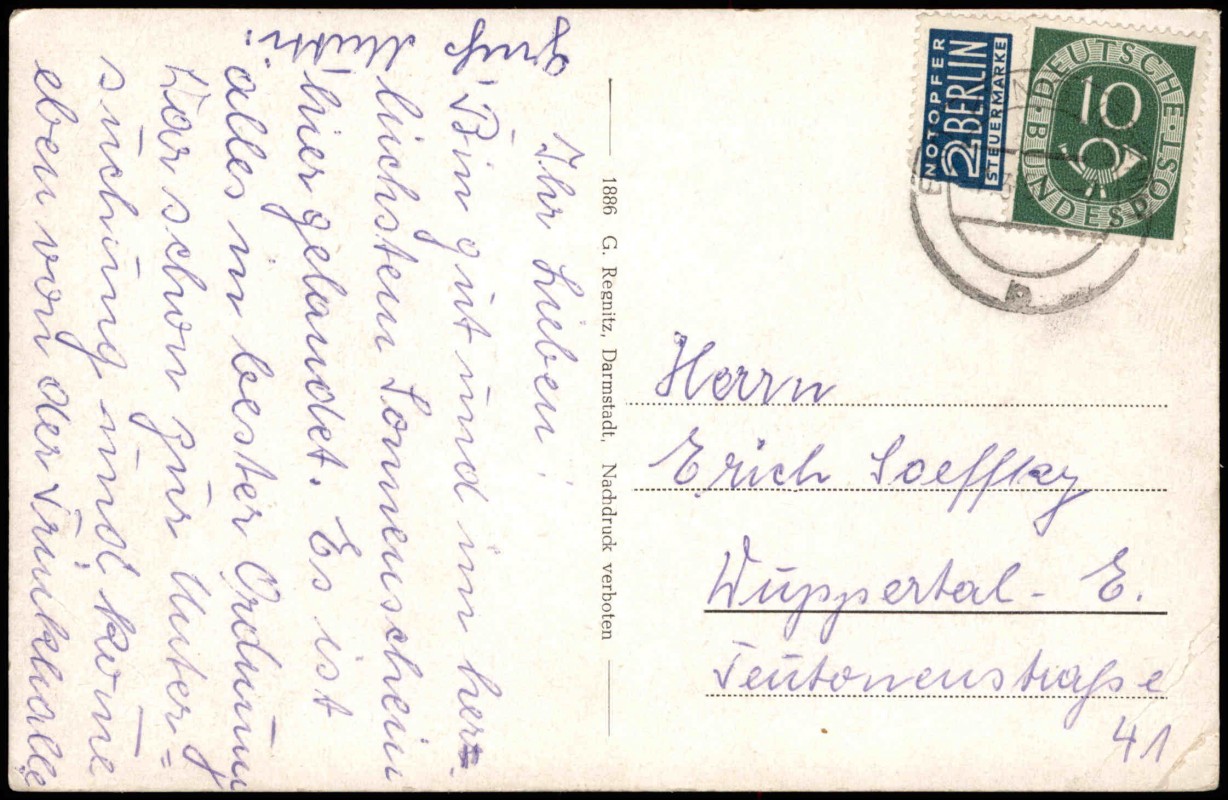 Ihr Lieben!
Bin gut und im her-
lichsten Sonnenschein
hier gelandet. Es ist
alles in bester Ordnung
War schon zur Unter=
suchung und kome
eben von der Trinkhalle
Gruß
Mutti.
1886 G. Regnitz, Darmstadt, Nachdruck verboten
NOTOPFER
2 BERLIN
STEUERMARKE
DEUTSCHE BUNDESPOST
10
b
Herrn
Erich Soeffky
Wuppertal - E.
Teutonenstraße
41